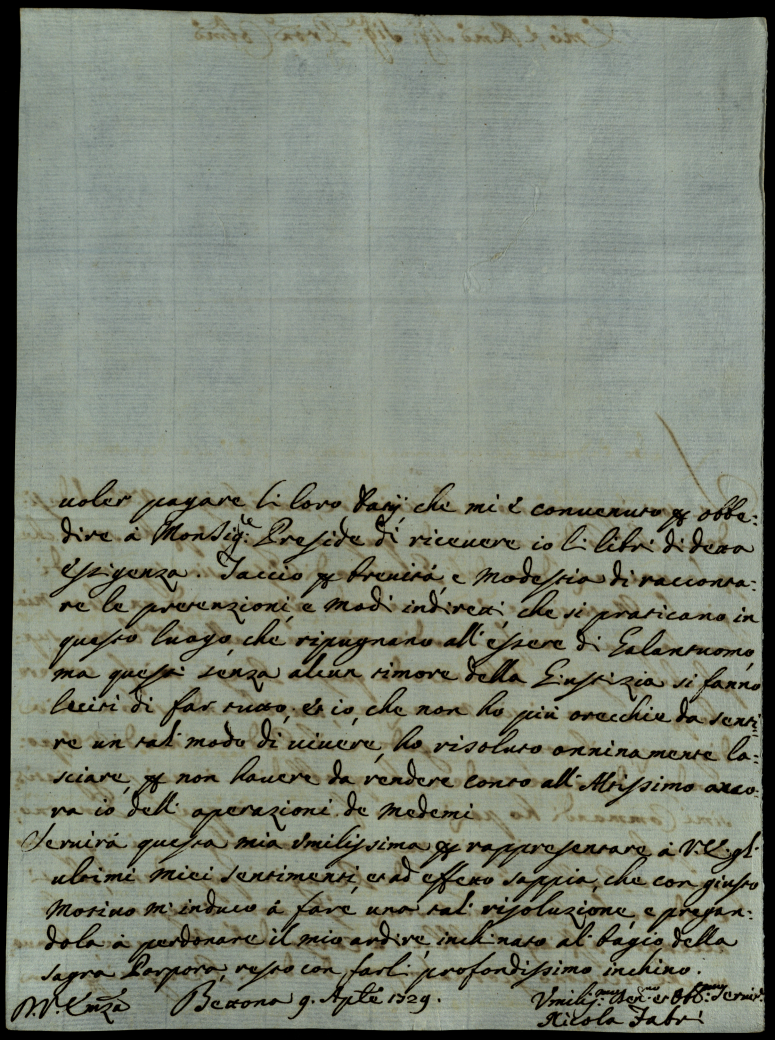 uoler pagare li loro Dazij che mi è conuenuto p obbe:
dire à Monsig.re Preside di riceuere io li libri di detta
Esigenza. Taccio p breuità, e modestia di racconta:
re le pretenzioni, e modi indiretti, che si praticano in
questo luogo, che ripugnano all' essere di Galantuomo,
ma questi senza alcun timore della Giustizia si fanno
leciti di far tutto, et io, che non ho più orecchie da senti:
re un tal modo di uiuere, ho risoluto onninamente la:
sciare, p non hauere da rendere conto all' Altissimo anco:
ra io dell' operazioni de medemi
Seruirà questa mia Vmilissima p rappresentare à V.E. gl'
ultimi miei sentimenti, et ad effetto sappia, che con giusto
motiuo m' induco à fare una tal risoluzione, e pregan:
dola à perdonare il mio ardire inchinato al bagio della
sagra Porpora, resto con farli profondissimo inchino.
D. V. Emza Bettona 9. Aple 1729. Vmiliss.mo Deu.mo et Obb.mo Seruit.
Nicola Fabri